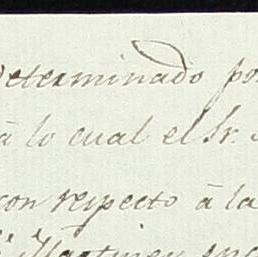 determinado por
à lo cual el Sr.
con respecto à la
Martinez